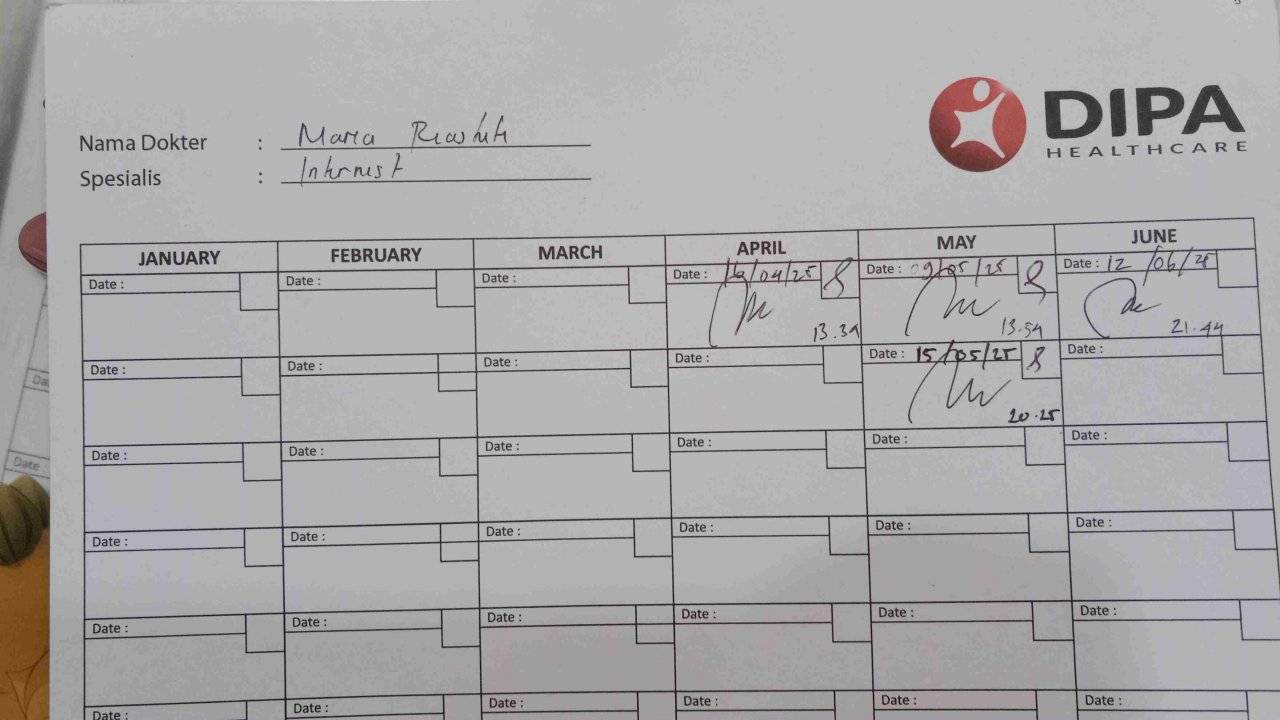 DIPA
HEALTHCARE
Nama Dokter : Maria
Spesialis : Internist
JANUARY FEBRUARY MARCH APRIL MAY JUNE
Date : Date : Date : Date : /04/25 Date : 09/05/25 Date : 12/06/25
13.39 13.54 21.44
Date : Date : Date : Date : Date : 15/05/25 Date :
20.25
Date : Date : Date : Date : Date : Date :
Date : Date : Date : Date : Date : Date :
Date : Date : Date : Date : Date : Date :
Date : Date : Date : Date : Date : Date :
Da
Date